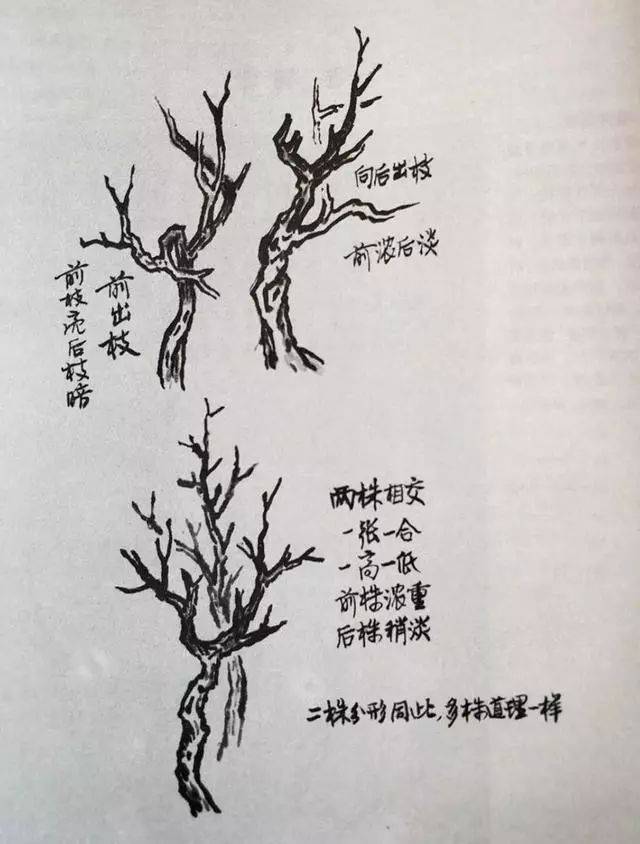 向后出枝
前浓后淡
前出枝
前枝亮后枝暗
两株相交
一张一合
一高一低
前株浓重
后株稍淡
二株分形同此，多株道理一样